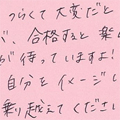 つらくて大変だと
合格すると楽し
が待っていますよ!
自分をイメージし
乗り越えてくださ